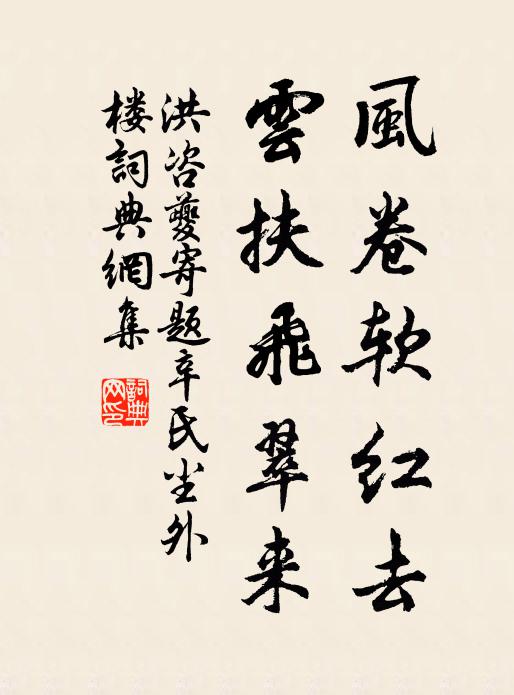 風卷软红去
雲扶飛翠来
洪咨夔寄题辛氏尘外
楼詞典網集
詞典網印